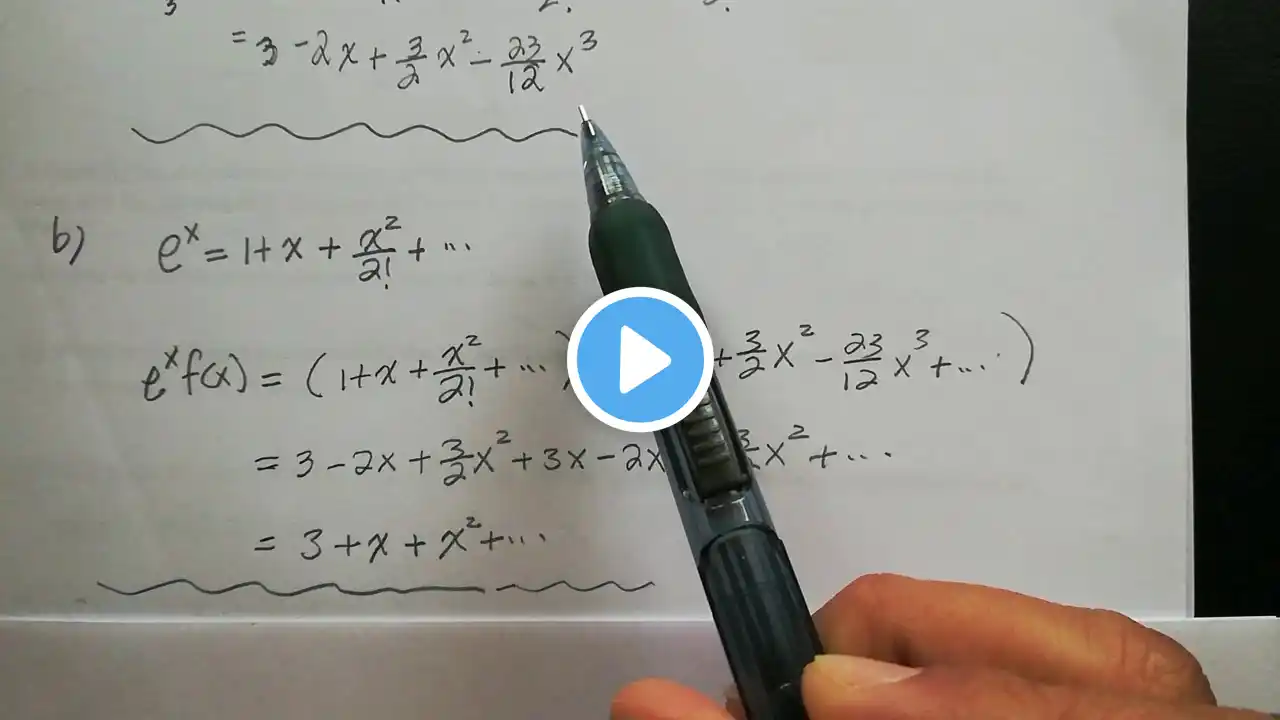 = 3 - 2x + \frac{3}{2} x^2 - \frac{23}{12} x^3
b) e^x = 1 + x + \frac{x^2}{2!} + ...
e^x f(x) = ( 1 + x + \frac{x^2}{2!} + ... ) + \frac{3}{2} x^2 - \frac{23}{12} x^3 + ... )
= 3 - 2x + \frac{3}{2} x^2 + 3x - 2x x^2 + ...
= 3 + x + x^2 + ...